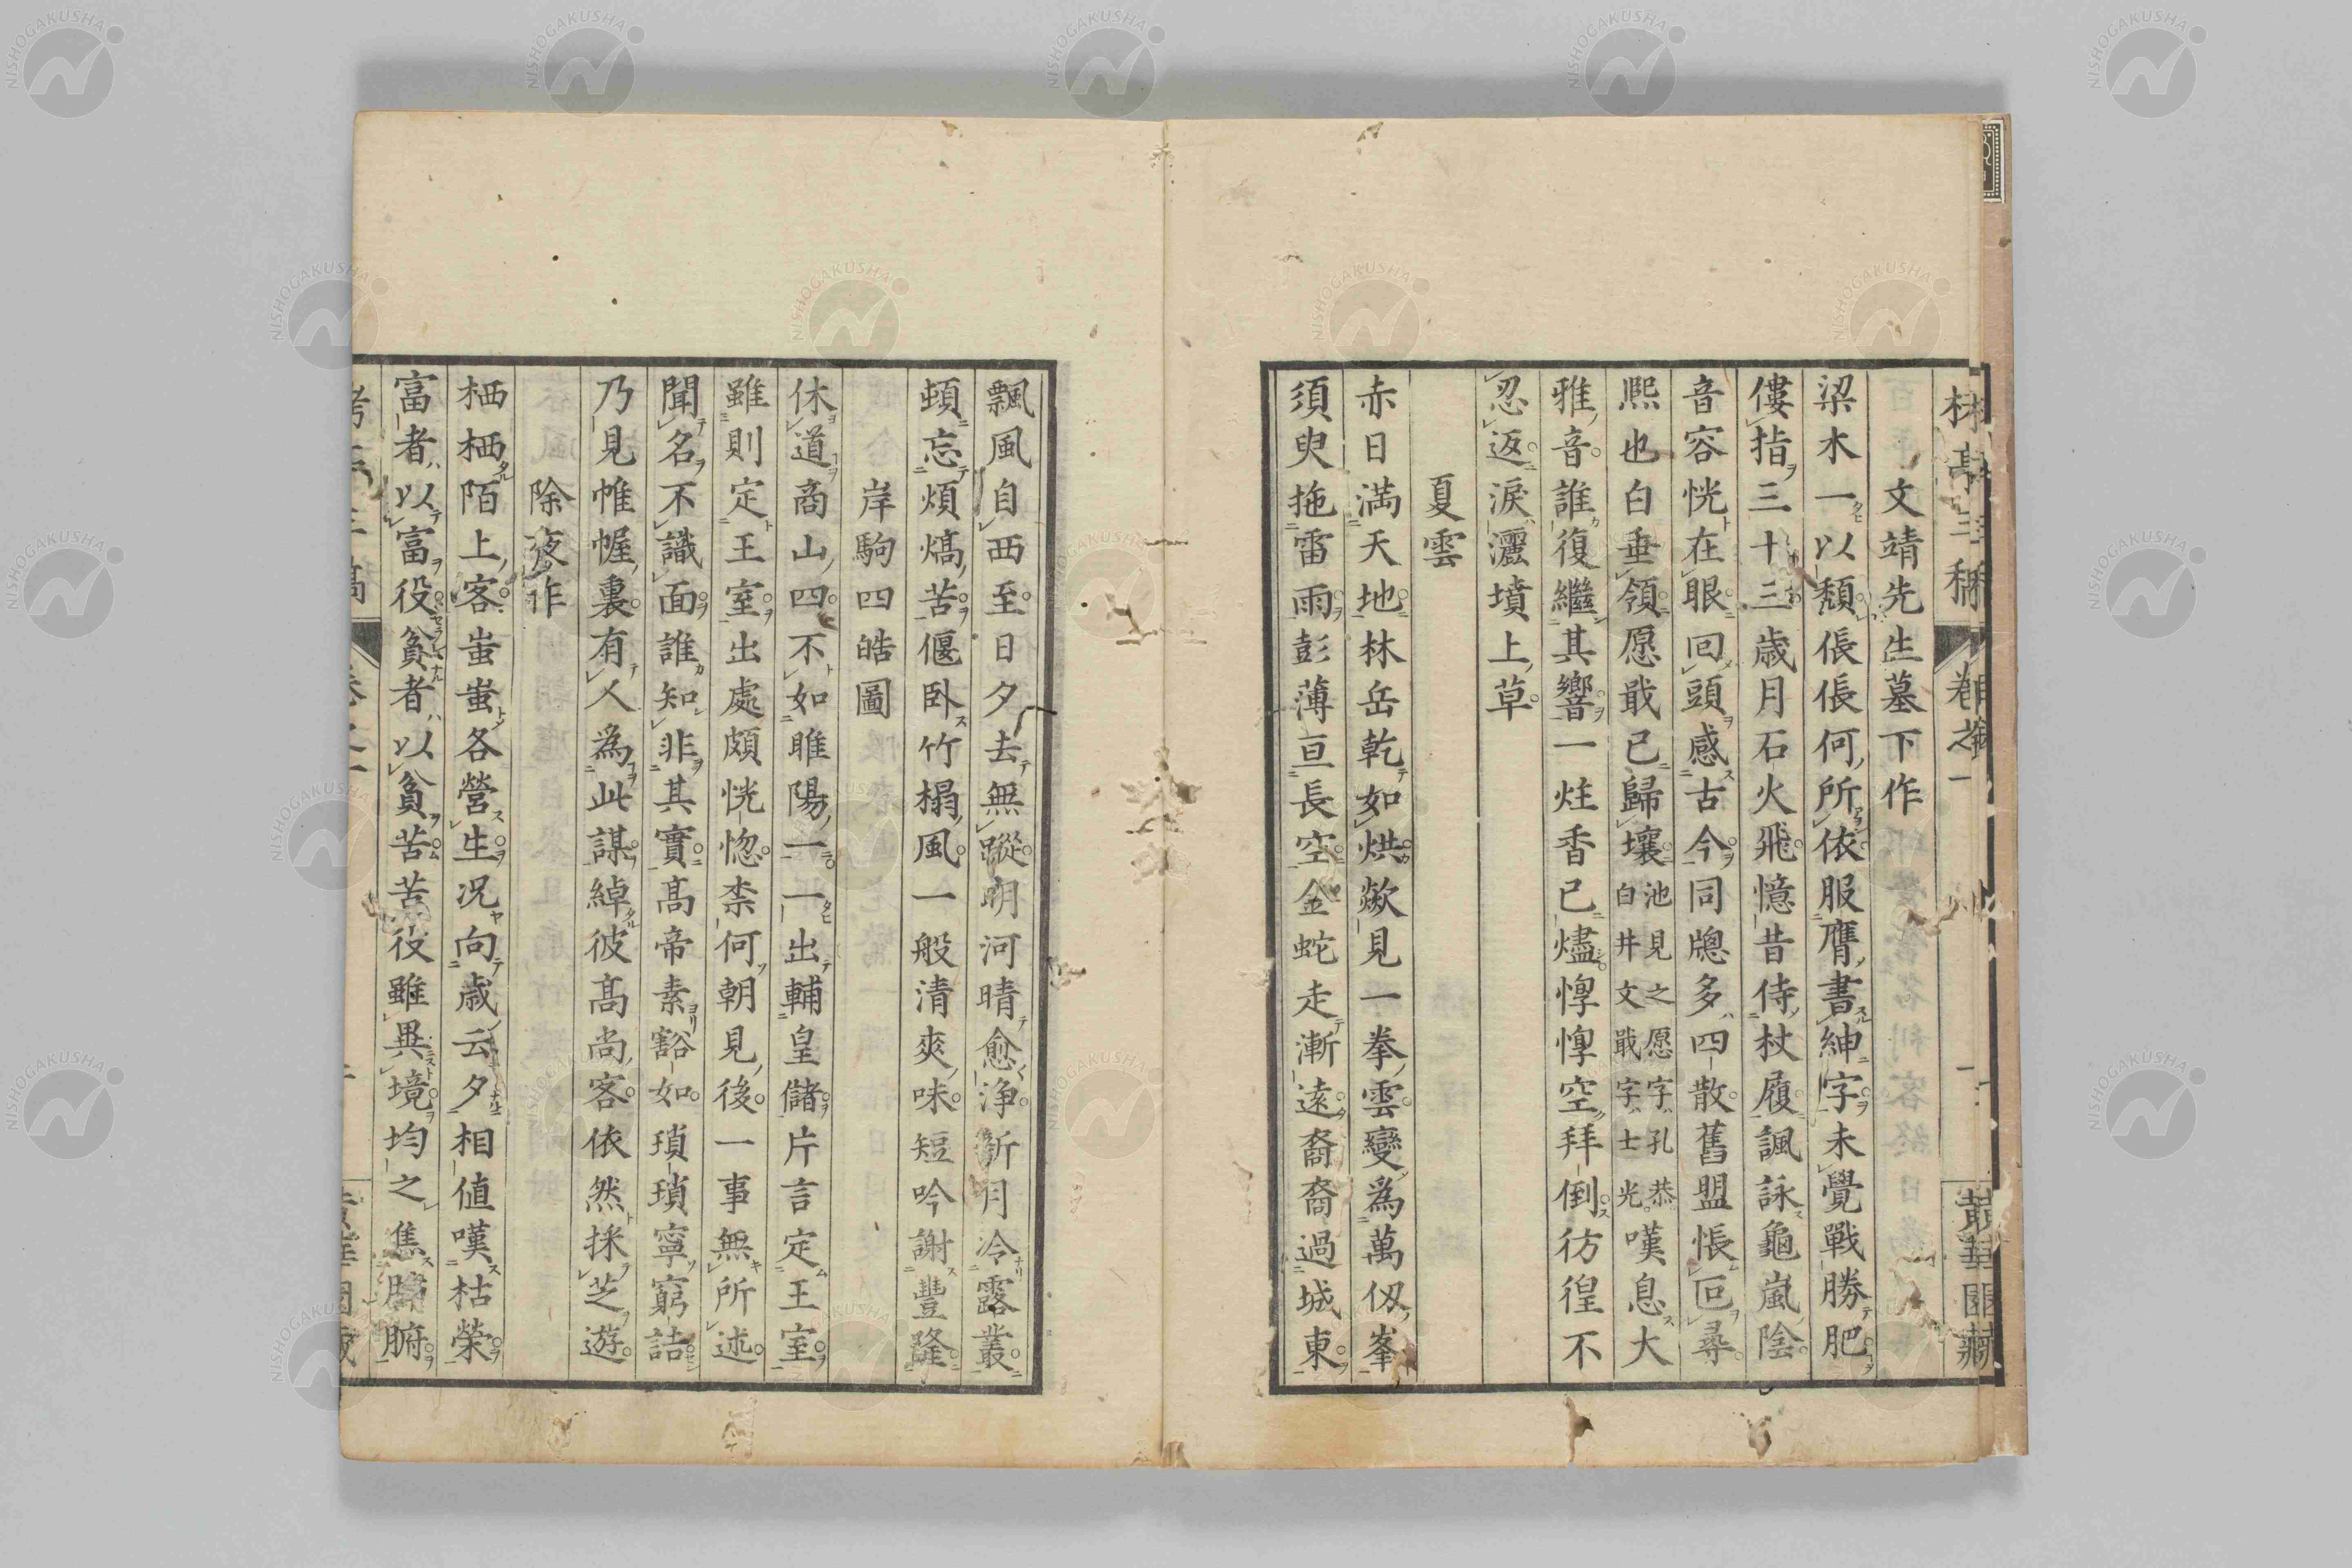 文靖先生墓下作
梁木一以頽倀倀何所依服膺書紳字未覺戰勝肥
僂指三十三歳月石火飛憶昔侍杖履諷詠龜嵐陰
音容恍在眼回頭感古今同牕多四散舊盟悵叵尋
熈也白垂領愿戢已歸壤池見之愿字孔恭白井文戢字士光嘆息大
雅音誰復繼其響一炷香已燼惸惸空拜倒彷徨不
忍返淚灑墳上草
夏雲
赤日満天地林岳乾如烘歘見一拳雲變為萬仭峯
須臾拖雷雨彭薄亘長空金蛇走漸遠裔裔過城東
飄風自西至日夕去無蹤明河晴愈浄新月冷露叢
頓忘煩熇苦偃卧竹榻風一般清爽味短吟謝豐隆
岸駒四皓圖
休道商山四不如睢陽一一出輔皇儲片言定王室
雖則定王室出處頗恍惚柰何朝見後一事無所述
聞名不識面誰知非其實髙帝素豁如瑣瑣寧窮詰
乃見帷幄裏有人為此謀綽彼髙尚客依然採芝遊
除夜作
栖栖陌上客蚩蚩各營生况向歳云夕相値嘆枯榮
富者以富役貧者以貧苦苦役雖異境均之焦臓腑